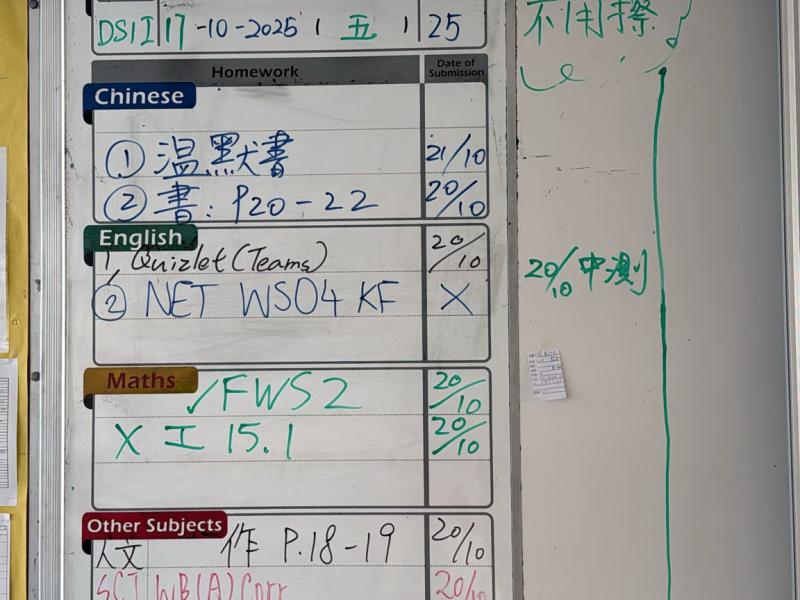 DS1I 17-10-2025 (五) 25
不用擦
Homework Date of Submission
Chinese
① 温默書 21/10
② 書: P20-22 20/10
English
1, Quizlet (Teams) 20/10
② NET WS04 KF X
20/10 中測
Maths
✓ FWS2 20/10
X 工 15.1 20/10
Other Subjects
人文 作 P.18-19 20/10
SCI WB(A) Corr 20/10